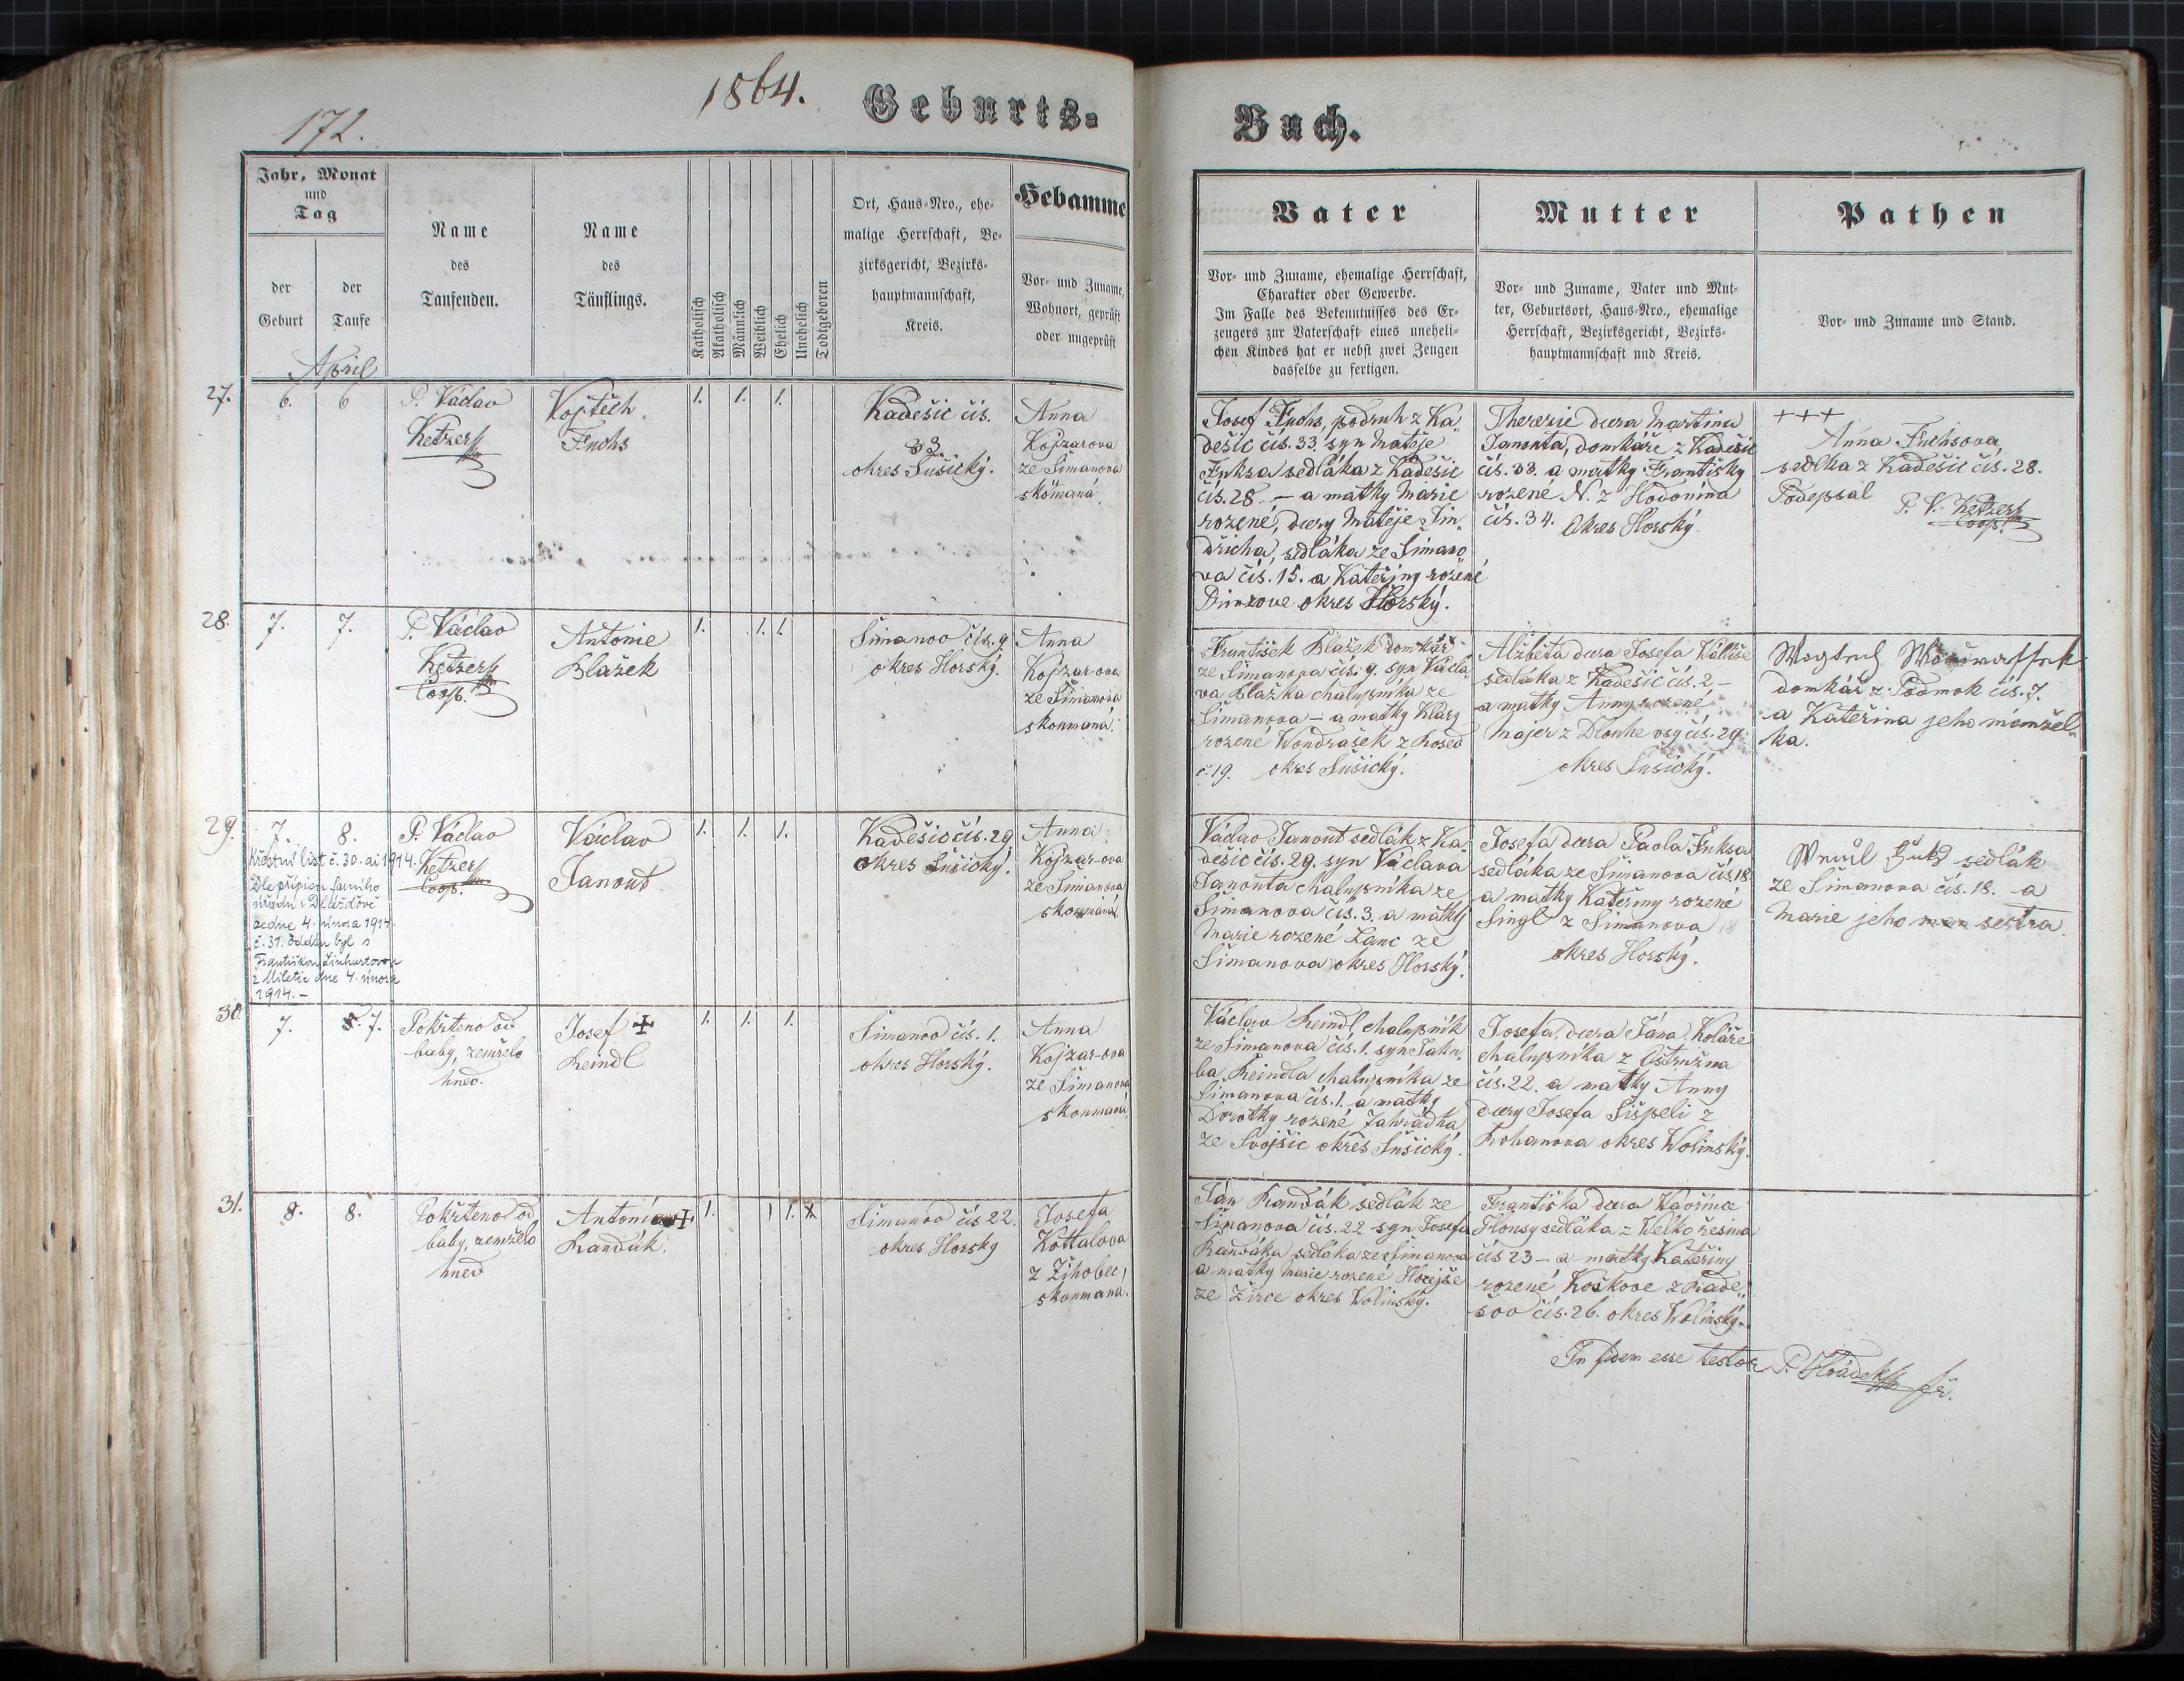 172.
1864.
Geburts-
Jahr, Monat
und
Tag
der
Geburt
der
Taufe
April
Name
des
Taufenden.
Name
des
Täuflings.
Katholisch
Akatholisch
Männlich
Weiblich
Ehelich
Unehelich
Todtgeboren
Ort, Haus-Nro., ehe-
malige Herrschaft, Be-
zirksgericht, Bezirks-
hauptmannschaft,
Kreis.
Hebamme
Vor- und Zuname,
Wohnort, geprüft
oder ungeprüft
27.
6.
6
P. Václav
Ketzer
Vojtěch
Fuchs
1.
1.
1.
Kadešic čís.
33.
okres Sušický.
Anna
Kojzarova
ze Šimanova
skoumaná
28.
7.
7.
P. Václav
Ketzer
Coop.
Antonie
Blažek
1.
1.
1.
Šimanov čís. 9
okres Horský.
Anna
Kojzar-ova
ze Šimanova
skoumaná.
29.
7.
8.
Křestní list č. 30. ai 1914.
Dle přípisu farního
úřadu v
ze dne 4. února 1914.
č. 31. oddán byl s
Františkou Linhartovou
z Miletic dne 4. února
1914.-
P. Václav
Ketzer
Coop.
Václav
Janout
1.
1.
1.
Kadešic čís. 29
okres Sušický.
Anna
Kojzar-ova
ze Šimanova
skoumaná
30
7.
7.
Pokřteno od
baby, zemřelo
hned.
Josef ✝
Reindl
1.
1.
1.
Šimanov čís. 1.
okres Horský.
Anna
Kojzar-ova
ze Šimanova
skoumaná.
31.
8.
8.
Pokřteno od
baby, zemřelo
hned
✝
Randák.
1.
1
1.
Šimanov čís 22.
okres Horský
Josefa
Kottalova
z Žihobec,
skoumana.
Buch.
Vater
Vor- und Zuname, ehemalige Herrschaft,
Charakter oder Gewerbe.
Im Falle des Bekenntnisses des Er-
zeugers zur Vaterschaft eines uneheli-
chen Kindes hat er nebst zwei Zeugen
dasselbe zu fertigen.
Mutter
Vor- und Zuname, Vater und Mut-
ter, Geburtsort, Haus-Nro., ehemalige
Herrschaft, Bezirksgericht, Bezirks-
hauptmannschaft und Kreis.
Pathen
Vor- und Zuname und Stand.
Josef Fuchs, podruh z Ka-
dešic čís. 33. syn Matěje
Fuksa sedláka z Kadešic
čís. 28. - a matky Marie
rozené, dcery Matěje Jin-
dřicha, sedláka ze Šimano
va čís. 15. a Kateřiny rozené
okres Horský.
Therezie dcera Martina
Janouta, domkáře z Kadešic
čís. 33. a matky Františky
rozené N. z Hodonína
čís. 34. Okres Horský
+++
Anna Fuchsova
sedlka z Kadešic čís. 28.
Podepsal
P. V. Ketzer
Coop.
František Blažek domkář
ze Šimanova čís. 9. syn Václa-
va Blažka chalupníka ze
Šimanova - a matky Klary
rozené Wondrašek z
č. 19. okres Sušický.
Alžběta dcera Josefa
sedláka z Kadešic čís. 2 -
a matky Anny rozené
Majer z Dlouhe vsy čís. 29.
okres Sušický.
domkář z Podmok čís. 7.
a Kateřina jeho manžel-
ka.
Václav Janout sedlák z Ka
dešic čís. 29. syn Václava
Janouta chalupníka ze
Šimanova čís. 3. a matky
Marie rozené Lanc ze
Šimanova okres Horský.
Josefa dcera Pavla Fuksa
sedláka ze Šimanova čís. 18
a matky Kateřiny rozené
Singl z Šimanova 18
okres Horský.
sedlák
ze Šimanova čís. 18. a
Marie jeho sestra.
Václav Reindl chalupník
ze Šimanova čís. 1. syn Jaku-
ba Reindla chalupníka ze
Šimanova čís. 1. a matky
Dorotky rozené Zahrádka
ze Svojšic okres Sušický.
Josefa, dcera Jána Koláře
chalupníka z Ostružna
čís. 22. a matky Anny
dcery Josefa
Rohanova okres Wolinský.
Ján Randák sedlák ze
Šimanova čís. 22 syn Josefa
Randáka sedláka ze Šimanova
a matky Marie rozené Hořejše
ze Žirce okres Wolinský.
Františka dcera Vavřince
Honsy sedláka z
čís 23 - a matky Kateřiny
rozené Koškove z Rade-
šov čís. 26. okres Wolinský.
In fidem esse testor P. Hrádek